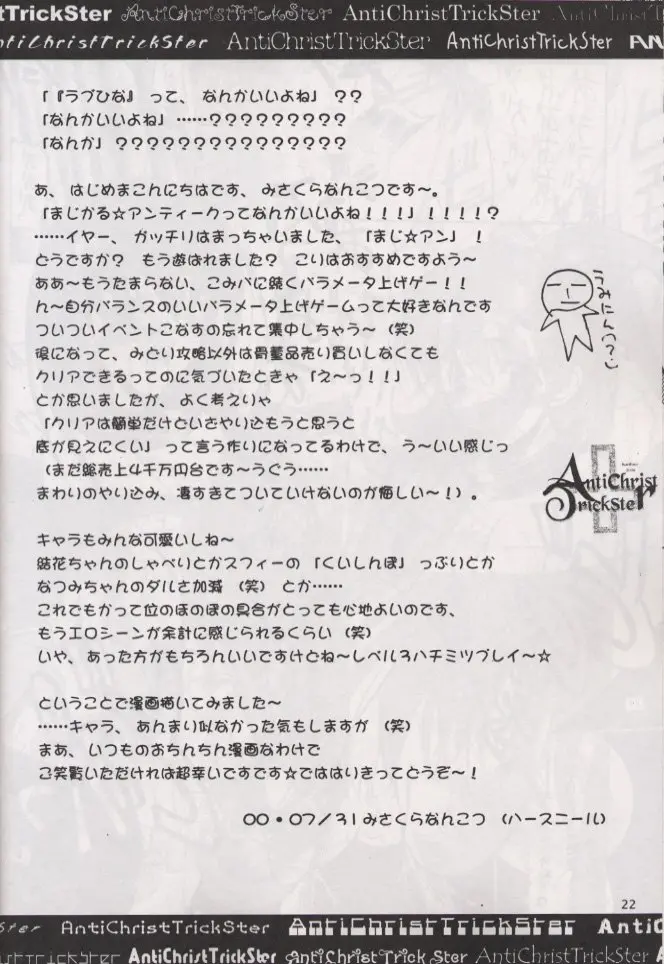 tTrickSter AntiChristTrickSter AntiChristTrickSter AntiChristT
ntiChristTrickSter AntiChristTrickSter AntiChristTrickSter AN
「『ラブひな』って、なんかいいよね」??
「なんかいいよね」……?????????
「なんか」???????????????
あ、はじめまこんにちはです、みさくらなんこつです〜。
「まじかる☆アンティークってなんかいいよね!!!」!!!!?
……イヤー、ガッチリはまっちゃいました、「まじ☆アン」!
どうですか? もう遊ばれました? こりはおすすめですよう〜
ああ〜もうたまらない、こみパに続くパラメータ上げゲー!!
ん〜自分バランスのいいパラメータ上げゲームって大好きなんです
ついついイベントこなすの忘れて集中しちゃう〜(笑)
後になって、みどり攻略以外は骨董品売り買いしなくても
クリアできるってのに気づいたときゃ「え〜っ!!」
とか思いましたが、よく考えりゃ
「クリアは簡単だけどいざやり込もうと思うと
底が見えにくい」って言う作りになってるわけで、う〜いい感じっ
(まだ総売上4千万円台です〜うぐぅ……
まわりのやり込み、凄すぎてついていけないのが悔しい〜!)。
うみにん(?)
AntiChrist
TrickSter
キャラもみんな可愛いしね〜
結花ちゃんのしゃべりとかスフィーの「くいしんぼ」っぷりとか
なつみちゃんのダルさ加減(笑)とか……
これでもかって位のほのぼの具合がとっても心地よいのです、
もうエロシーンが余計に感じられるくらい(笑)
いや、あった方がもちろんいいですけどね〜レベル3ハチミツプレイ〜☆
ということで漫画描いてみました〜
……キャラ、あんまり似なかった気もしますが(笑)
まあ、いつものおちんちん漫画なわけで
ご笑覧いただければ超幸いですです☆でははりきってどうぞ〜!
00・07/31みさくらなんこつ(ハースニール)
22
ster AntiChristTrickSter AntiChristTrickSter AntiC
istTrickSter AntiChristTrickSter AntiChristTrickSter AntiChristTrickSter A